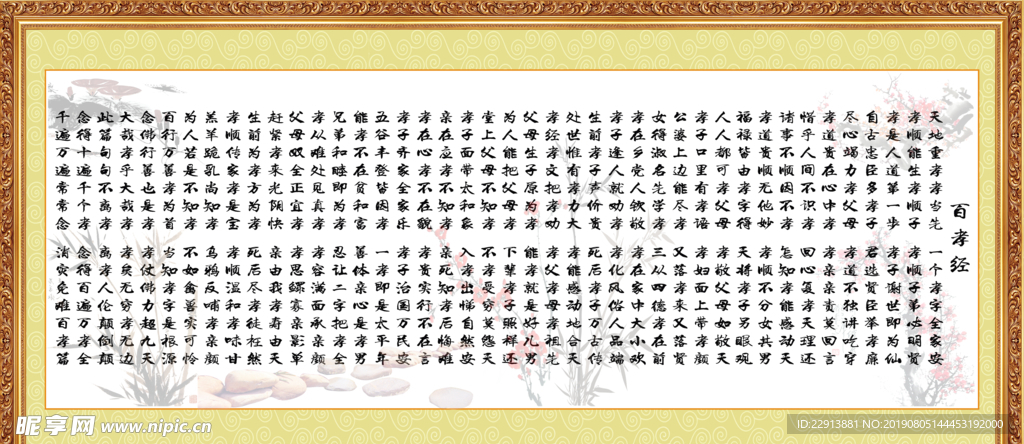 百孝经
天地重孝孝当先 一个孝字全家安
孝顺能生孝顺子 孝顺子弟必明贤
孝是人道第一步 孝子谢世即为仙
自古忠臣多孝子 君选贤臣举孝廉
尽心竭力孝父母 孝道不独讲吃穿
孝道贵在心中孝 孝亲亲责莫回言
惜乎人间不识孝 回心复孝天理还
诸事不顺因不孝 怎知孝能感动天
孝道贵顺无他妙 孝顺不分女共男
福禄皆由孝字得 天将孝子另眼观
人人都可孝父母 孝敬父母如敬天
孝子口里有孝语 孝妇面上带孝颜
公婆上边能尽孝 又落孝来又落贤
女得淑名先学孝 三从四德孝在前
孝在乡党人钦敬 孝在家中大小欢
孝子逢人就劝孝 孝化风俗人品端
生前孝子声价贵 死后孝子万古传
处世惟有孝力大 孝能感动地合天
孝经孝文把孝劝 孝父孝母孝祖先
父母生子原为孝 能孝就是好儿男
为人能把父母孝 下辈孝子照样还
堂上父母不知孝 不孝受穷莫怨天
孝子面带太和象 入孝出悌自然安
亲在应孝不知孝 亲死知孝后悔难
孝在心孝不在貌 孝贵实行不在言
孝子齐家全家乐 孝子治国万民安
五谷丰登皆因孝 一孝即是太平年
能孝不在贫和富 善体亲心是孝男
兄弟和睦即为孝 忍让二字把孝全
孝从难处见真孝 孝容满面承亲颜
父母双全正宜孝 孝思鳏寡亲影单
赶紧孝来光阴快 亲由我孝寿由天
生前为孝方为孝 死后尽孝徒枉然
孝顺传家孝是宝 孝顺温和孝味甘
羔羊跪乳尚知孝 乌鸦反哺孝亲颜
为人若是不知孝 不如禽兽实可怜
百行万善孝为首 当知孝字是根源
念佛行善也是孝 孝仗佛力超九天
大哉孝乎大哉孝 孝矣无穷孝无边
此篇句句不离孝 离孝人伦颠倒颠
念得十遍千个孝 念得百遍万孝全
千遍万遍常常念 消灾免难百孝篇
昵享网 www.nipic.cn
ID:22913881 NO:20190805144453192000